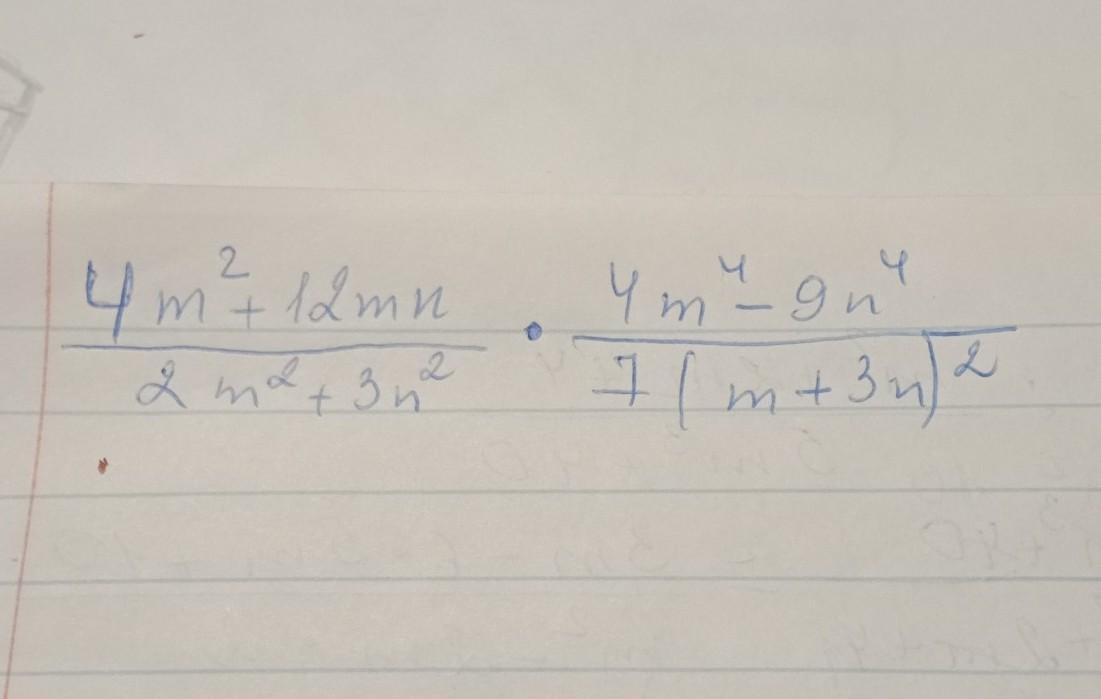 4m²+12mn / 2m²+3n² · 4m⁴-9n⁴ / 7(m+3n)²